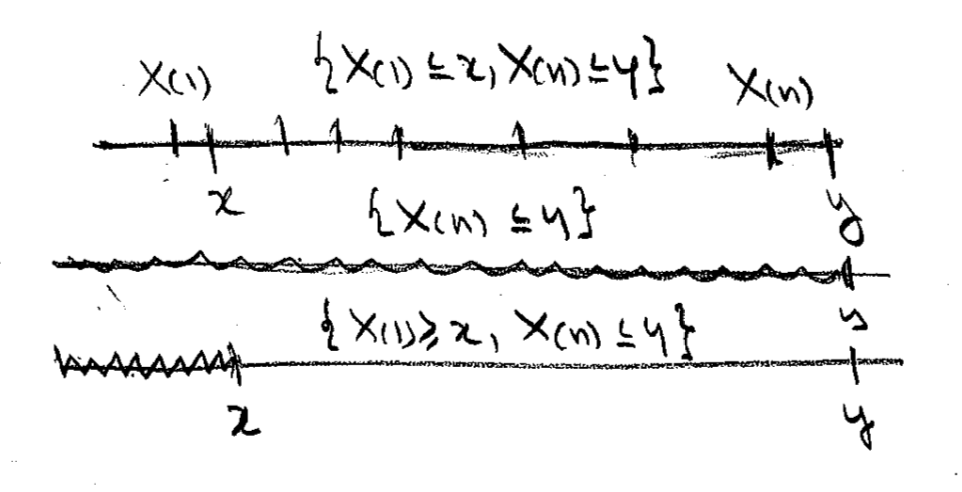 X(1) {X(1) ≤ x, X(n) ≤ y} X(n)
x {X(n) ≤ y} y
y
{X(1) ≥ x, X(n) ≤ y}
x y